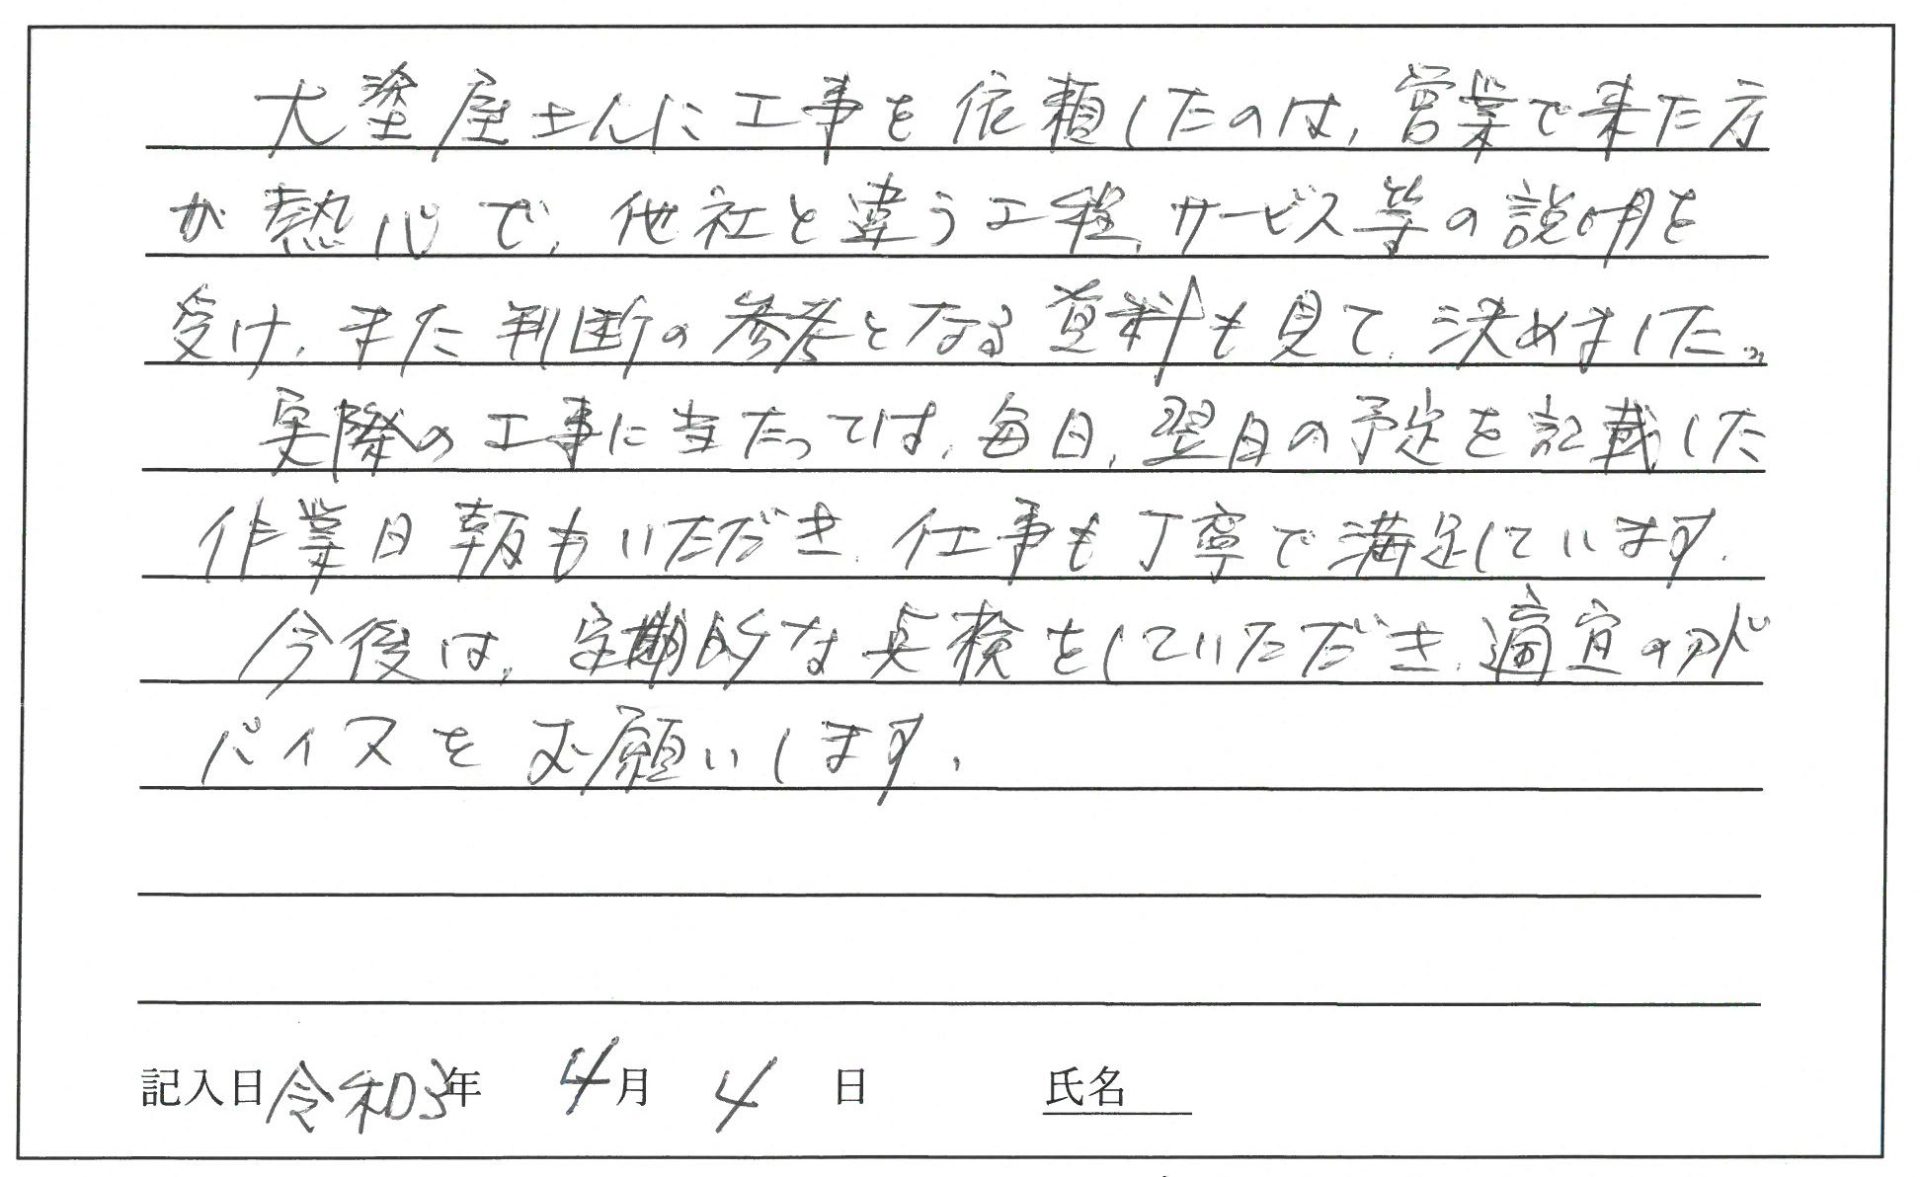 大塗屋さんに工事を依頼したのは、営業で来た方
が熱心で、他社と違う工程、サービス等の説明を
受け、また判断の参考となる資料も見て、決めました。
実際の工事に当たっては、毎日、翌日の予定を記載した
作業日報もいただき、仕事も丁寧で満足しています。
今後は、定期的な点検をしていただき、適宜のアド
バイスをお願いします。
記入日 令和3年 4月 4日 氏名